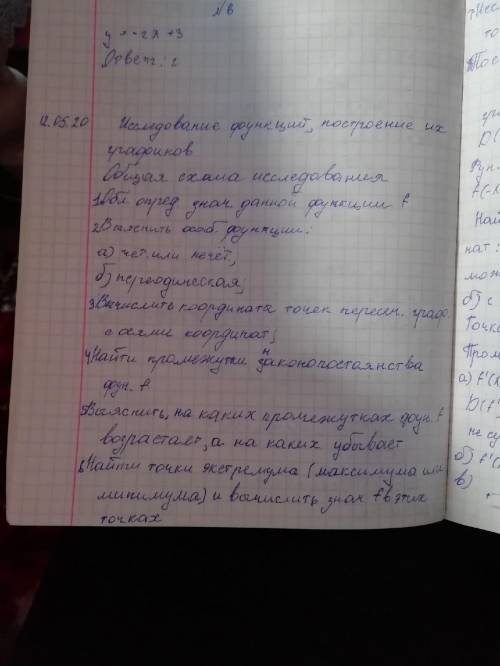 № 6
y = -2x + 3
Ответ: 2
12.05.20 Исследование функций, построение их
графиков
Общая схема исследования
1 Обл. опред знач данной функции f
2 Выяснить особ. функции:
а) чет. или нечёт,
б) периодическая;
3 Вычислить координата точек пересеч. граф.
с осями координат;
4 Найти промежутки знаконопостоянства
фун. f
5 Выяснить, на каких промежутках фун. f
возрастает, а на каких убывает
6 Найти точки экстремума (максимума или
минимума) и вычислить знач f в этих
точках
то
Рос
D(
Фун.
f(-x
Най
нат:
мож
б) с
Точк
Пром
а) f'(x
D(f'
не су
б) f'(
в)